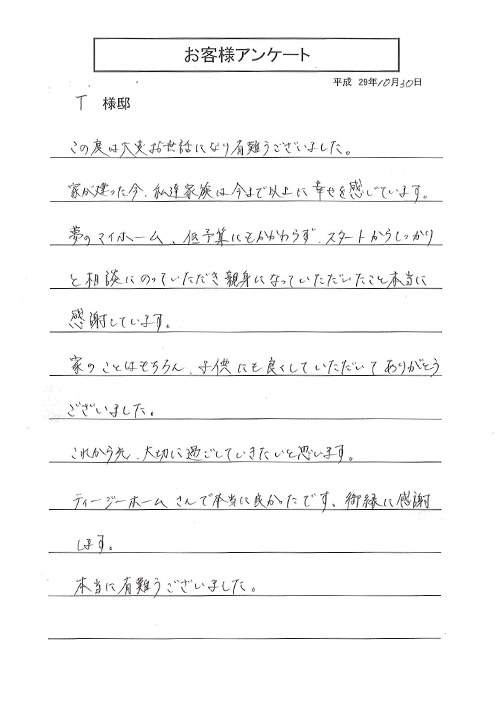 お客様アンケート
平成 29年10月30日
T 様邸
この度は大変お世話になり有難うございました。
家が建った今、私達家族は今まで以上に幸せを感じています。
夢のマイホーム、低予算にもかかわらず、スタートからしっかり
と相談にのっていただき親身になっていただいたこと本当に
感謝しています。
家のことはもちろん、子供にも良くしていただいてありがとう
ございました。
これから先、大切に過ごしていきたいと思います。
ティージーホームさんで本当に良かったです。御縁に感謝
します。
本当に有難うございました。